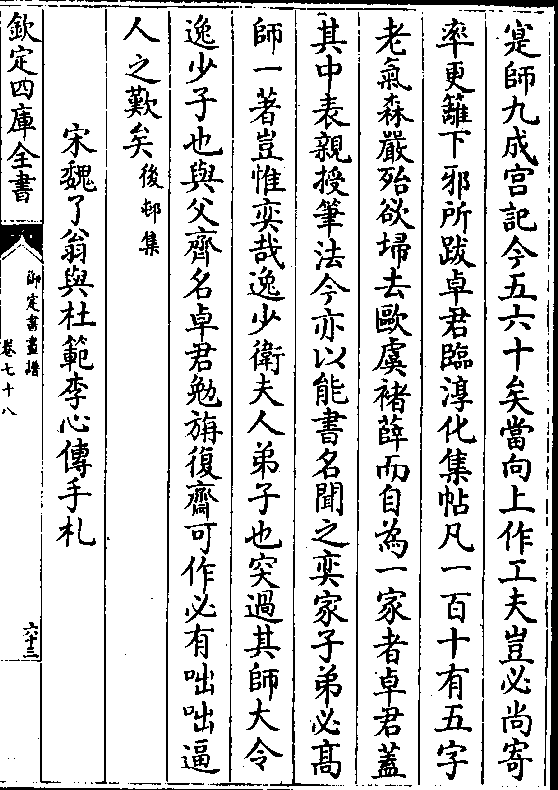 寔師九成宫記今五六十矣當向上作工夫豈必尚寄
率更籬下邪所跋卓君臨淳化集帖凡一百十有五字
老氣森嚴殆欲埽去歐虞褚薛而自為一家者卓君蓋
其中表親授筆法今亦以能書名聞之奕家子弟必髙
師一著豈惟奕哉逸少衛夫人弟子也突過其師大令
逸少子也與父齊名卓君勉旃復齋可作必有咄咄逼
人之歎矣後邨集
宋魏了翁與杜範李心傳手札
欽定四庫全書
御定書畫譜
卷七十八
六十三